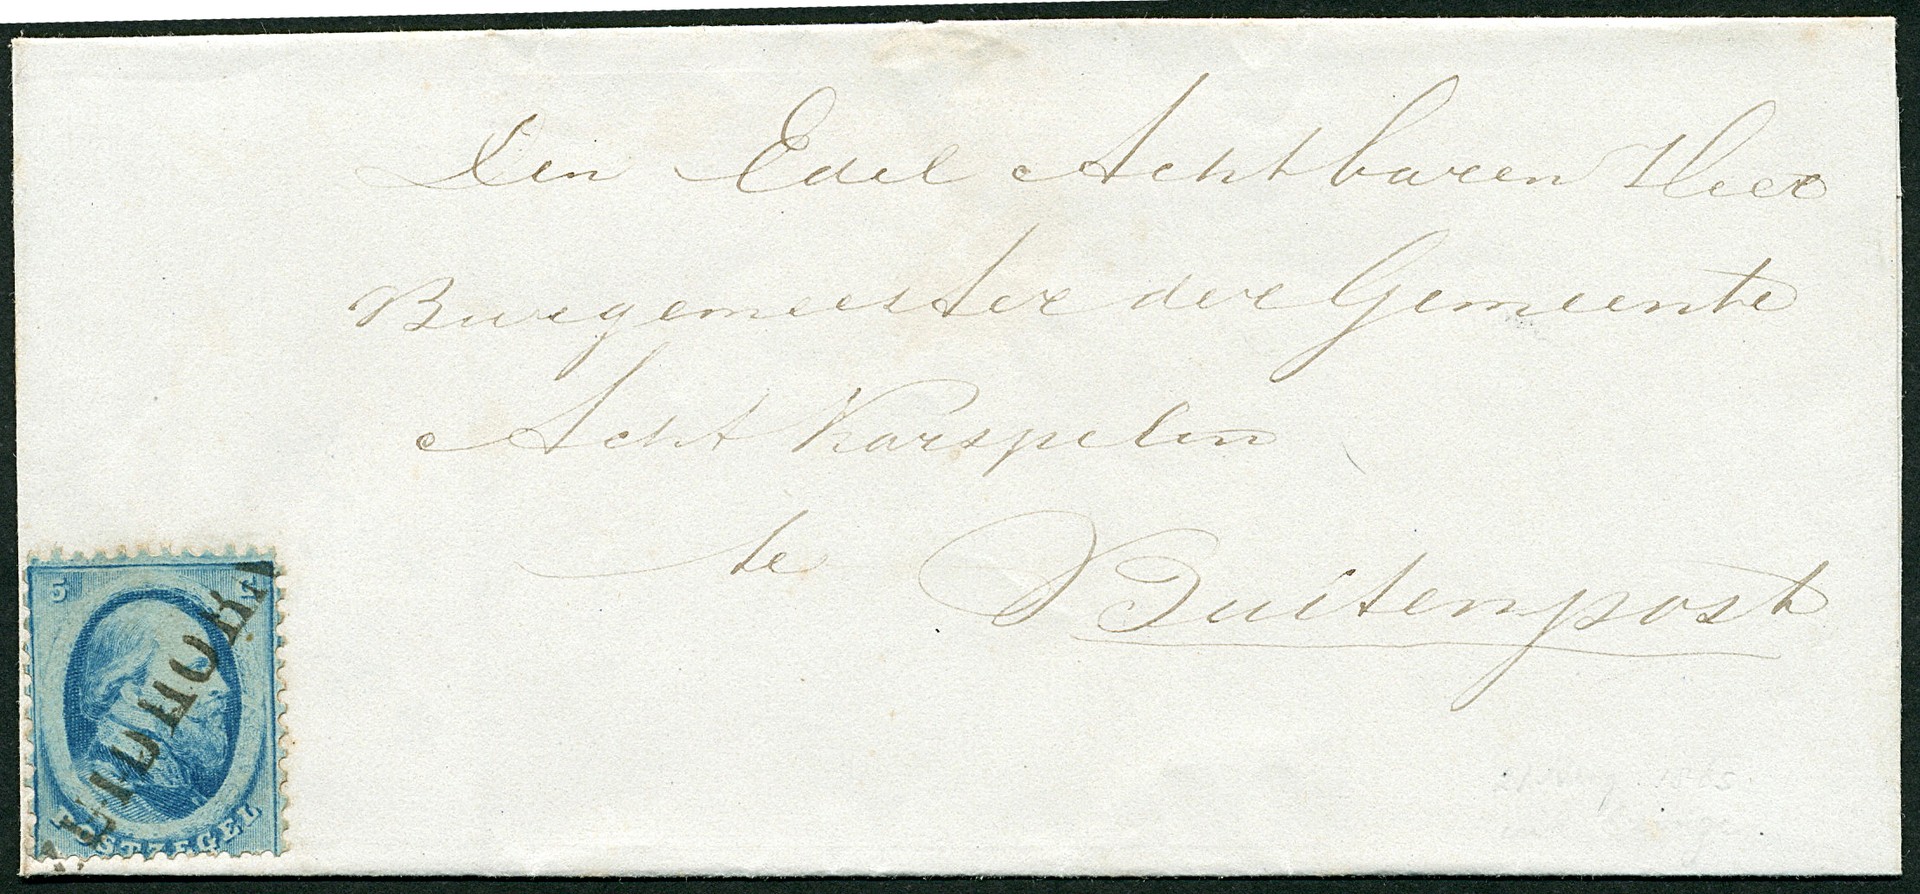 Den Edel Achtbaren Heer
Burgemeester der Gemeente
Acht Karspelen
te
Buitenpost
5
POSTZEGEL
1865